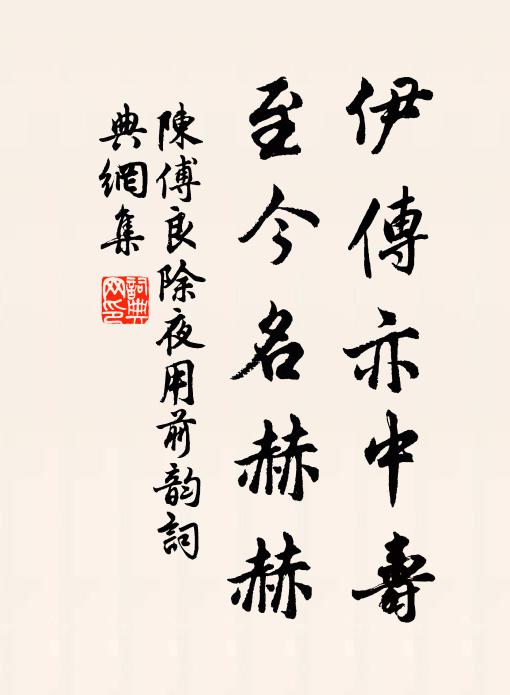 伊傅亦中壽
至今名赫赫
陳傅良除夜用前韵詞
典網集
詞典
网印